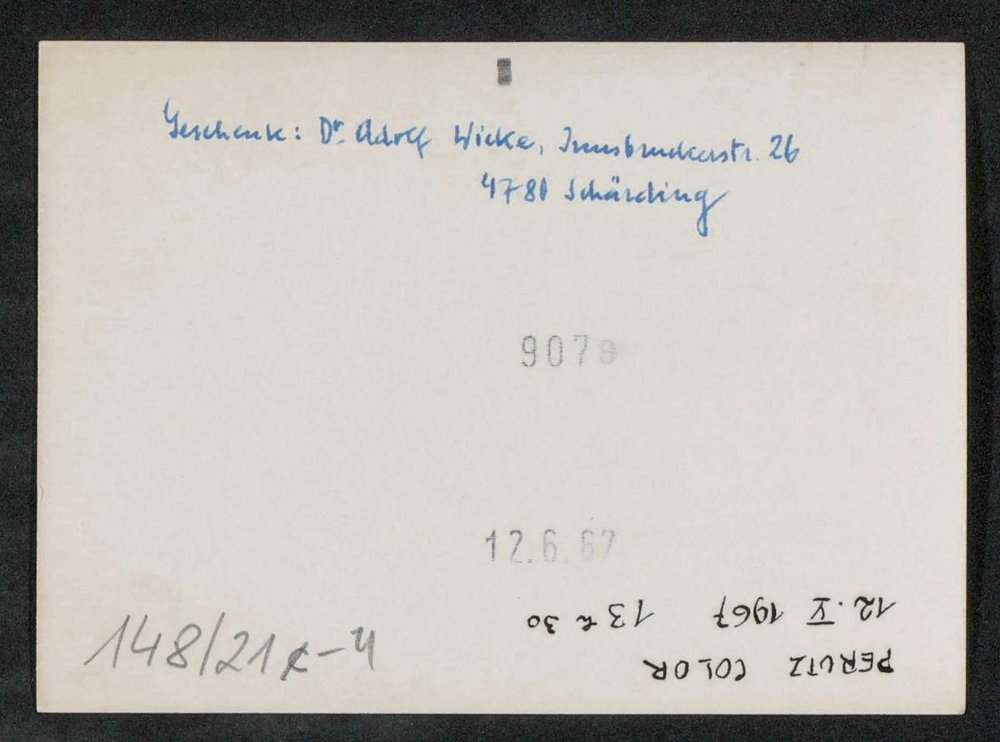 Geschenk: Dr. Adolf Wicke, Innsbruckerstr. 26
4780 Schärding
9078
12.6.67
148/21 c-4
PERUTZ COLOR
12. V 1967 13 h 30